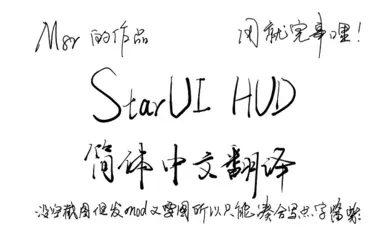 Msr 的作品 闭就完事哩!
StarUI HUD
简体中文翻译
没空截图但发mod又要图所以只能凑合写点字嘻嘻